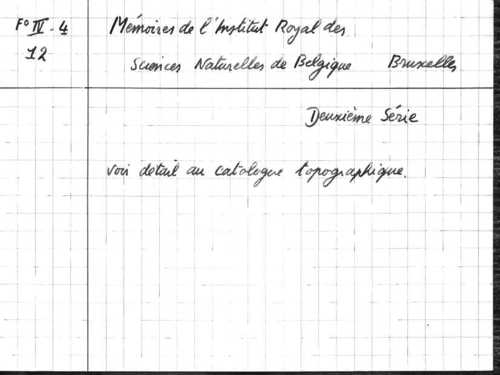 F° IV - 4
12
Mémoires de l'Institut Royal des
Sciences Naturelles de Belgique Bruxelles
Deuxième Série
voir detail au catalogue topographique.